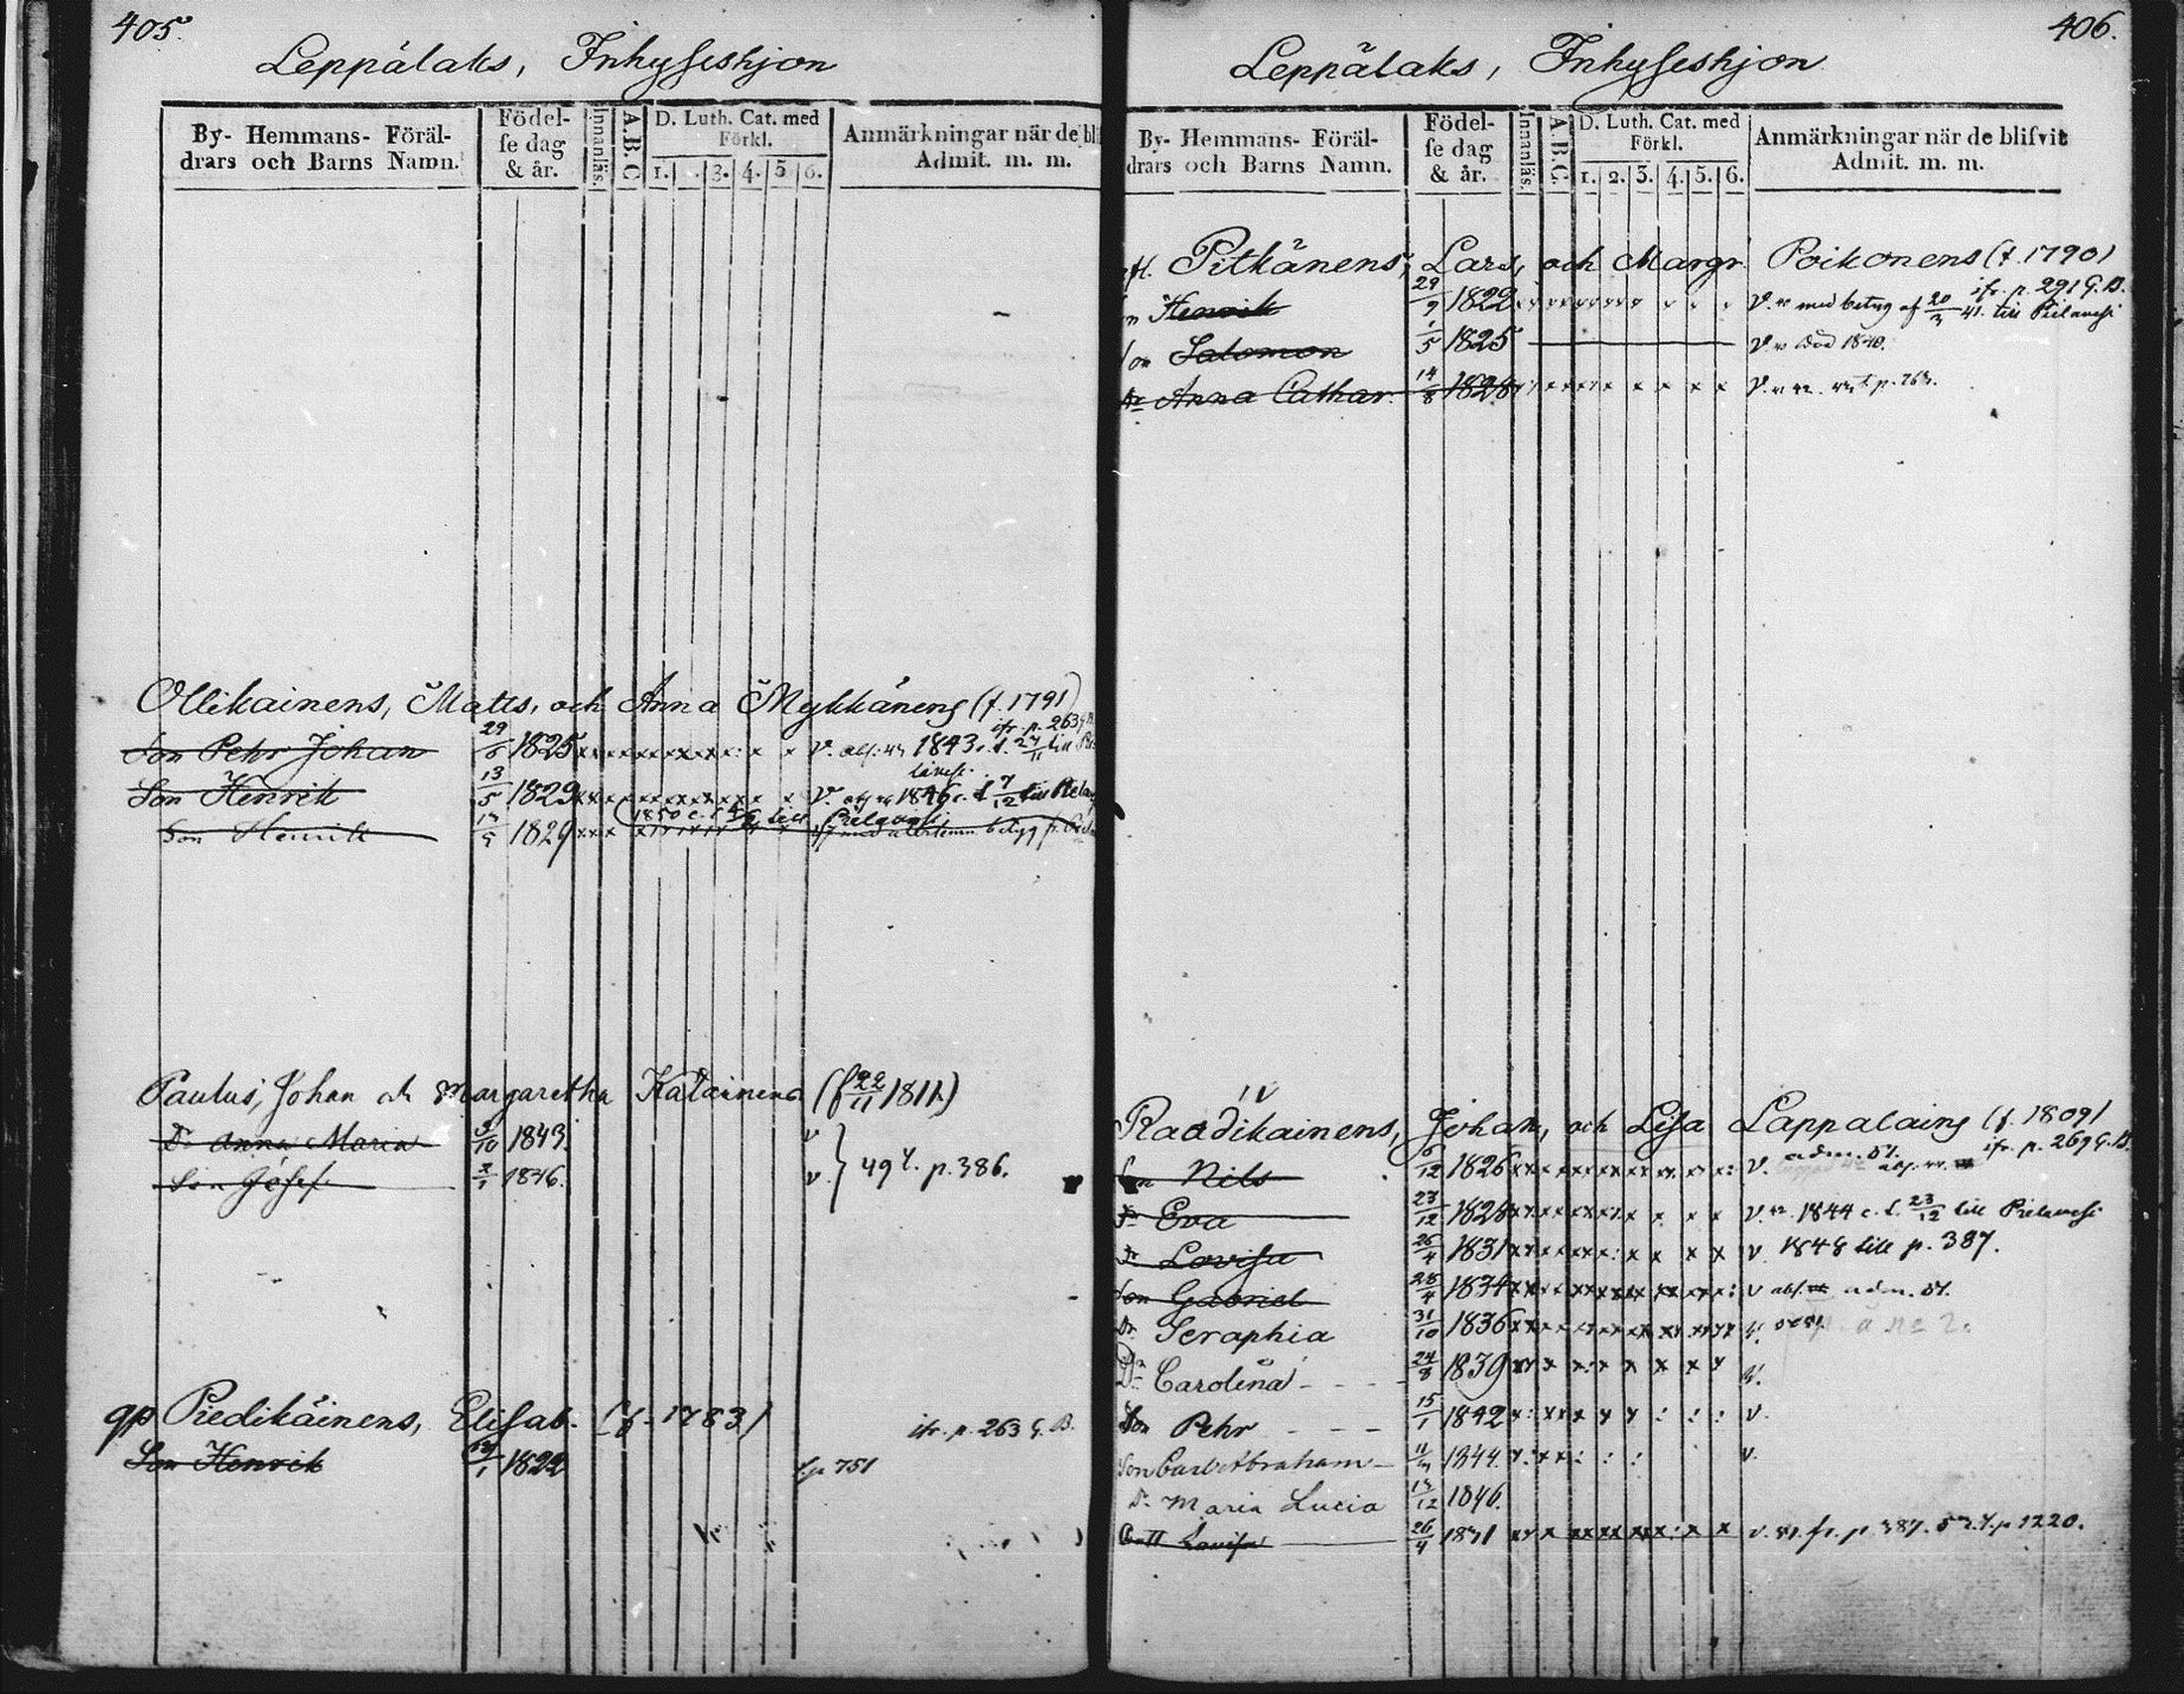 405.
Leppälaks, Inhyseshjon
By- Hemmans- Föräl-
drars och Barns Namn.
Födel-
se dag
& år.
Innanläs.
A.B.C
D. Luth. Cat. med
Förkl.
1. 3. 4. 5 6.
Anmärkningar när de bli
Admit. m. m.
Ollikainens, Matts, och Anna Mykkänens (f. 1791)
ifr. p. 263
Son Pehr Johan 29/6 1825 x x x x x x x x x x : x x V. 1843 c. f. 27/11 till
Son Henrik 13/5 1829 x x x x x x x x x x x V. 1846 c. f. 7/12 till Pielav
1850 c. f. till Pielavesi
Son Henrik 13/5 1829 x x x
Paulus, Johan och Margaretha Katainens (f 22/11 1811)
Dr Anna Maria 3/10 1843. v
Son Josef 2/1 1846. v } 49 t. p. 386.
gp Piedikäinens, Elisab. (f. 1783) ifr. p. 263 G. B.
Son Henrik 1822 t. p 751
406.
Leppälaks, Inhyseshjon
By- Hemmans- Föräl-
drars och Barns Namn.
Födel-
se dag
& år.
Innanläs.
A.B.C.
D. Luth. Cat. med
Förkl.
1. 2. 3. 4. 5. 6.
Anmärkningar när de blifvit
Admit. m. m.
Pitkänens, Lars, och Margr. Poikonens (f. 1790)
ifr. p. 291 G. B.
Henrik 29/9 1822 V. med betyg af 20/3 41. till Pielavesi
Son Salomon 1/5 1825 V. död 1840.
Dr Anna Cathar. 14/8 1828 x x x x x x x x V. 42. t p. 763.
Raadikainens, Johan, och Lisa Lappalains (f. 1809)
ifr. p. 269 G. B.
Son Nils 6/12 1826 x x x x x x x x x x V. adm. 51.
Dr Eva 23/12 1828 x x x x x x x x x x x V. 1844 c. f. 23/12 till Pielavesi
Dr Lovisa 26/4 1831 x x x x x x : x x x x V 1848 till p. 387.
Son Gabriel 28/4 1834 x x x x x x x x x x : V adm. 51.
Dr Seraphia 31/10 1836 x x x x x x x x x x
Dr Carolina 24/8 1839 x x x x : x x x x x V.
Son Pehr 15/1 1842 x : x x x x x : : : V.
Son Carl Abraham 1844. x : x x : : : V.
Dr Maria Lucia 13/12 1846.
Dott Lovisa 26/4 1831 x x x x x x x x x : x x v. 51. fr. p 387. 53. t. p 1220.